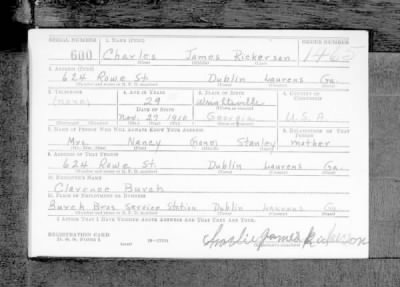 SERIAL NUMBER 1. NAME (Print) ORDER NUMBER
600 Charles James Rickerson
(First) (Middle) (Last)
2. ADDRESS (Print)
624 Rowe St. Dublin Laurens Ga.
3. TELEPHONE 4. AGE IN YEARS 5. PLACE OF BIRTH 6. COUNTRY OF CITIZENSHIP
(none) 29 Wrightsville
DATE OF BIRTH
Nov. 27 1910 Georgia U.S.A
7. NAME OF PERSON WHO WILL ALWAYS KNOW YOUR ADDRESS 8. RELATIONSHIP OF THAT PERSON
Mrs. Nancy Stanley mother
9. ADDRESS OF THAT PERSON
624 Rowe St. Dublin Laurens Ga.
10. EMPLOYER'S NAME
Clarence Burch
11. PLACE OF EMPLOYMENT OR BUSINESS
Burch Bros. Service Station Dublin Laurens Ga
I AFFIRM THAT I HAVE VERIFIED ABOVE ANSWERS AND THAT THEY ARE TRUE.
REGISTRATION CARD
D. S. S. FORM 1